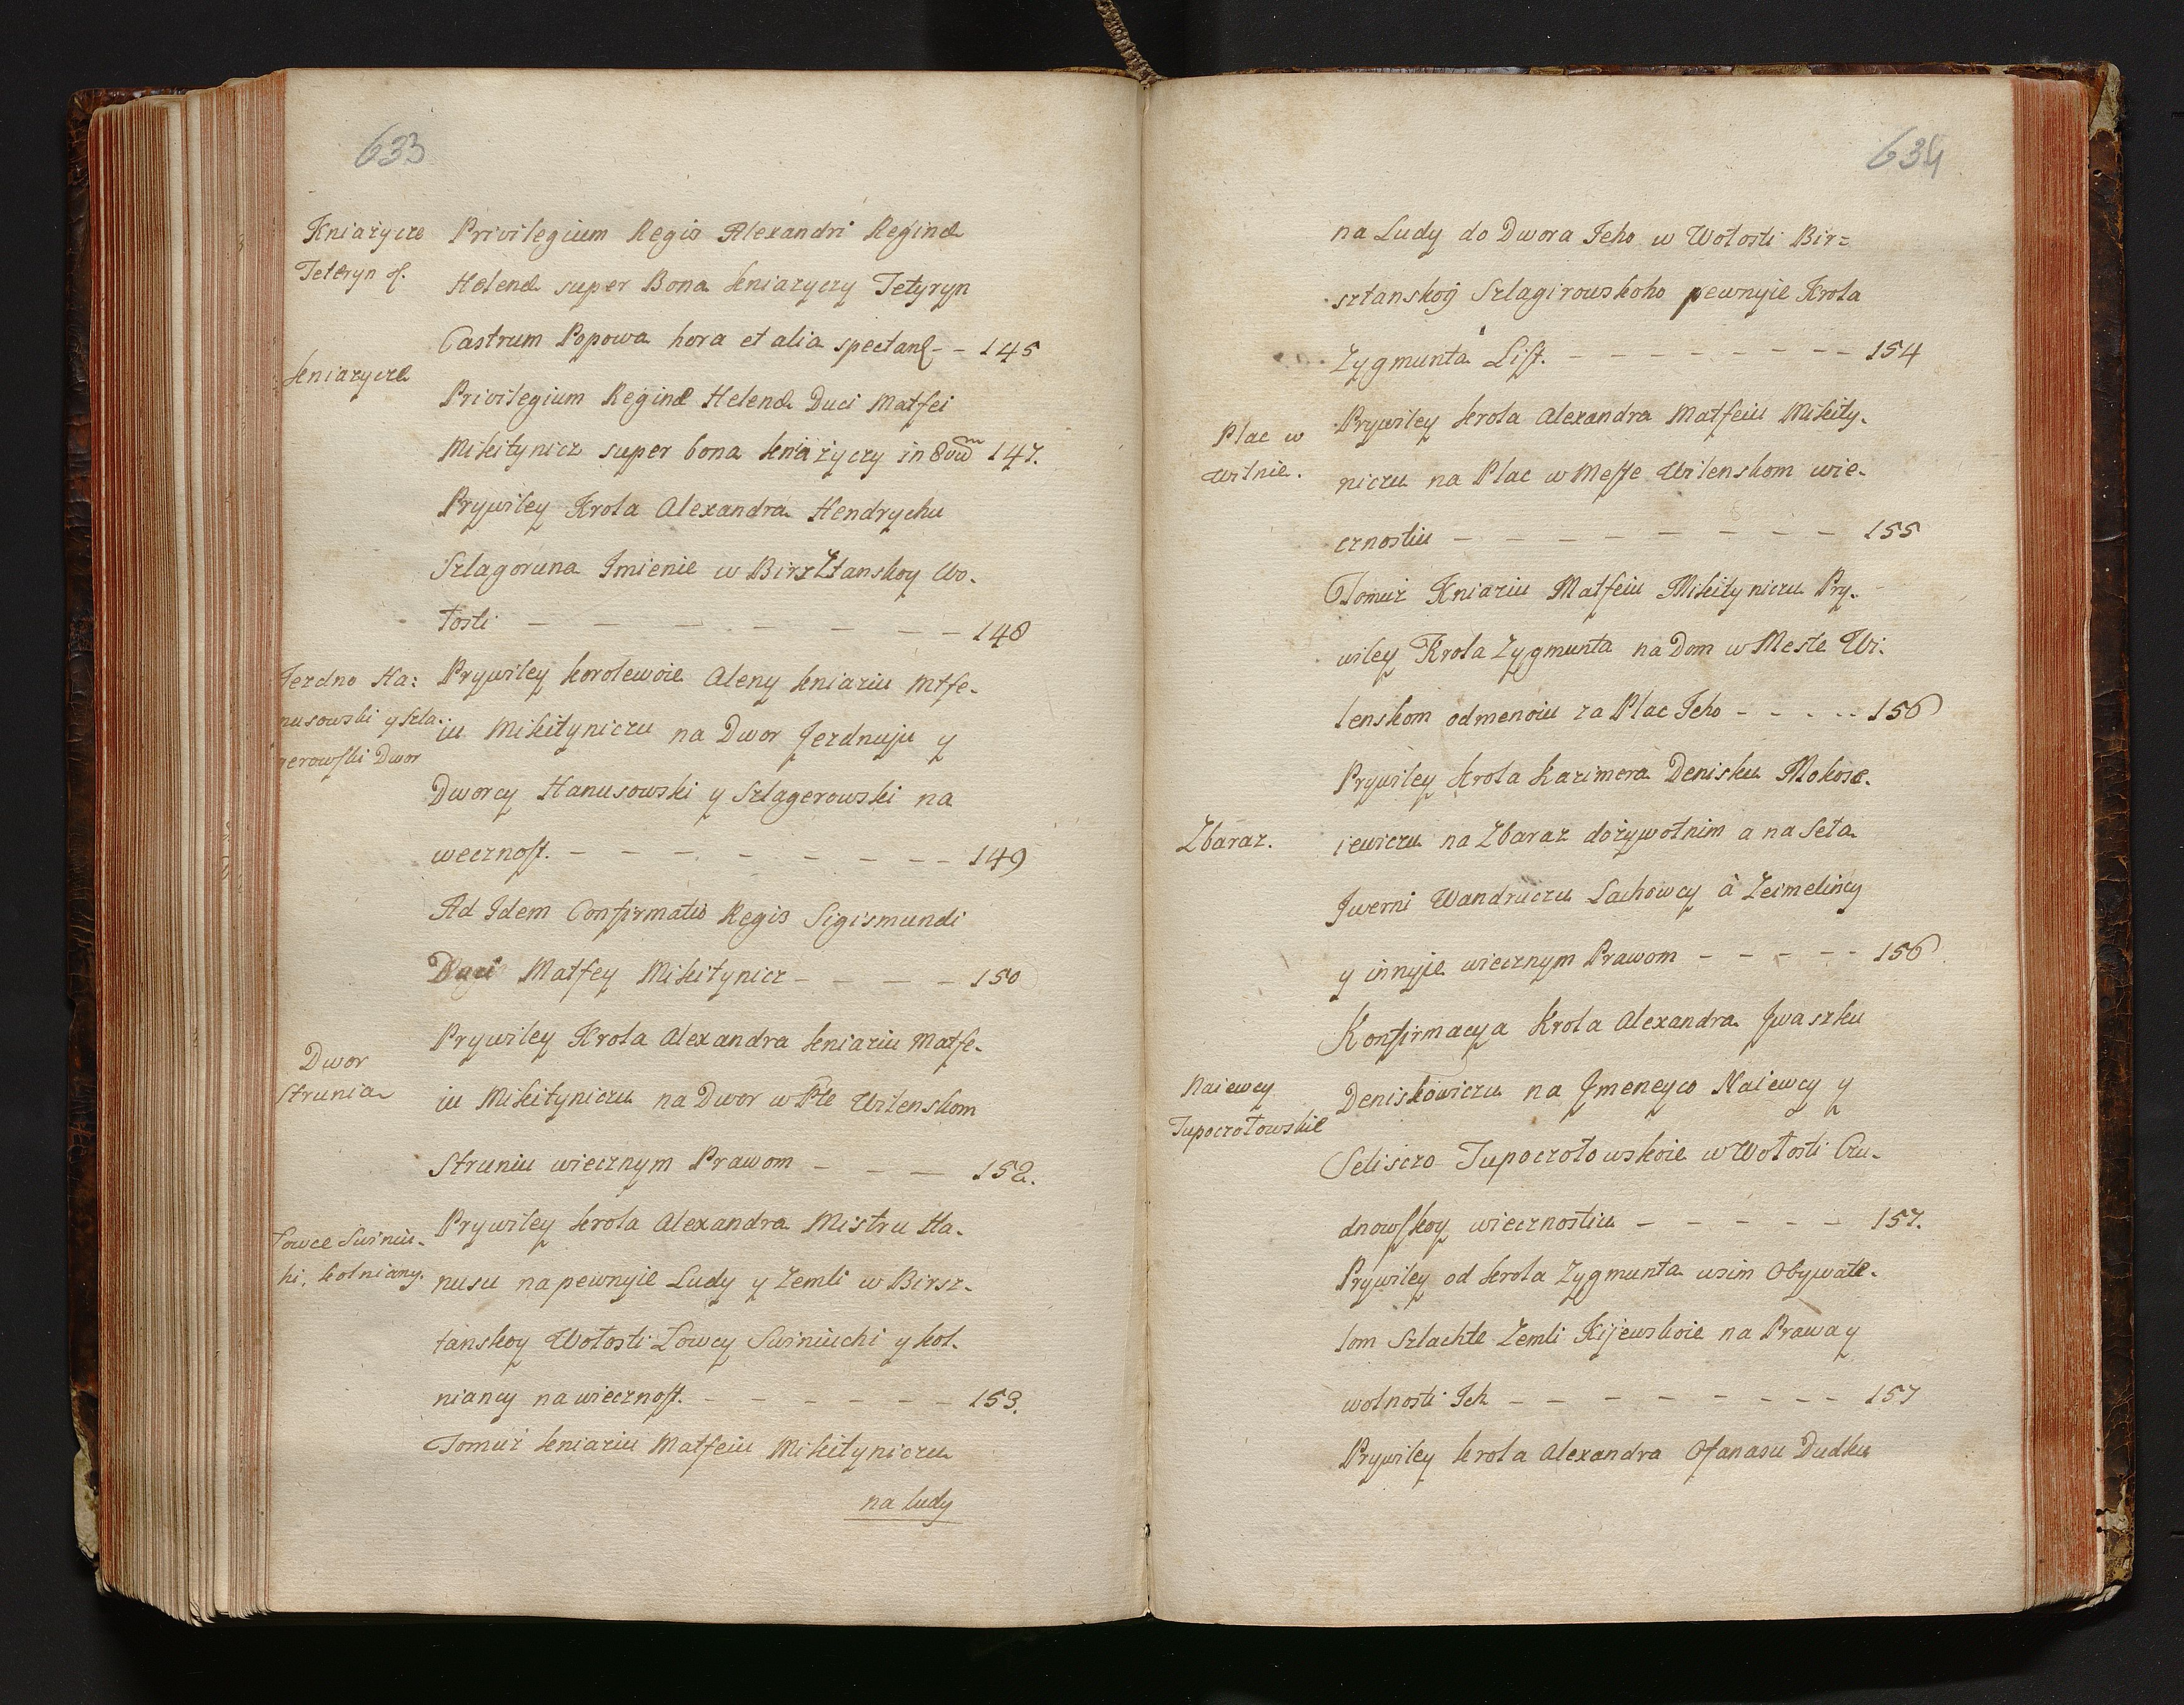 633
Kniażycze
Teteryn &.
Privilegium Regis Alexandri Reginæ
Helenæ super Bona Kniazyczy Tetyryn
Castrum Popowa hora et alia spectan -- 145
Kniazycze
Privilegium Reginæ Helenæ Duci Matfei
Mikitynicz super bona Kniażyczy in 147.
Prywiley Krola Alexandra Hendrychu
Szlagoruna Imienie w Birsztanskoy Wo-
łosti — — — — — — — — 148
Jezdno Ha:
nusowski y Szla-
gerowski Dwor
Prywiley korolewoie Aleny kniaziu Mtfe-
iu Mikityniczu na Dwor Jezdnuju y
Dworcy Hanusowski y Szlagerowski na
wecznost. — — — — — — — — 149
Ad Idem Confirmatio Regis Sigismundi
Duci Matfey Mikitynicz — — — — 150
Dwor
Strunia
Prywiley Krola Alexandra kniaziu Matfe-
iu Mikityniczu na Dwor w Pte Wilenskom
Struniu wiecznym Prawom — — — 152.
Łowce Suśniu-
hi, kolniany.
Prywiley krola Alexandra Mistru Ha-
nusu na pewnyie Ludy y Zemli w Birsz-
tanskoy Wołosti Łowcy Suśniuchi y kol-
niancy na wiecznost. — — — — — — 153.
Tomuż kniaziu Matfeiu Mikityniczu
na ludy
634
na Ludy do Dwora Jeho w Wołosti Bir=
sztanskoy Szlagirowskoho pewnyie Krola
Zygmunta List. — — — — — — — — 154
Plac w
Wilnie.
Prywiley krola Alexandra Matfeiu Mikity-
niczu na Plac w Meste Wilenskom wie-
cznostiu — — — — — — — — 155
Tomuż Kniaziu Matfeiu Mikityniczu Pry-
wiley Krola Zygmunta na Dom w Meste Wi-
lenskom odmenoiu za Plac Jeho — — — — 156
Zbaraz.
Prywiley krola Kazimera Denisku Mokose-
iewiczu na Zbaraz dożywotnim a na Seta
Jwerni Wandruczu Lachowcy à Zeimelincy
y innyie wiecznym Prawom — — — — — 156
Naiewcy
Tupoczołowskie
Konfirmacya Krola Alexandra Jwaszku
Deniskowiczu na Jmeneyco Naiewcy y
Seliszczo Tupoczołowskoie w Wołosti Czu-
dnowskoy wiecznostiu — — — — — 157.
Prywiley od krola Zygmunta wsim Obywate-
lom Szlachte Zemli Kijewskoie na Prawa y
wolnosti Ich — — — — — — — 157
Prywiley krola Alexandra Ofanasu Dudku